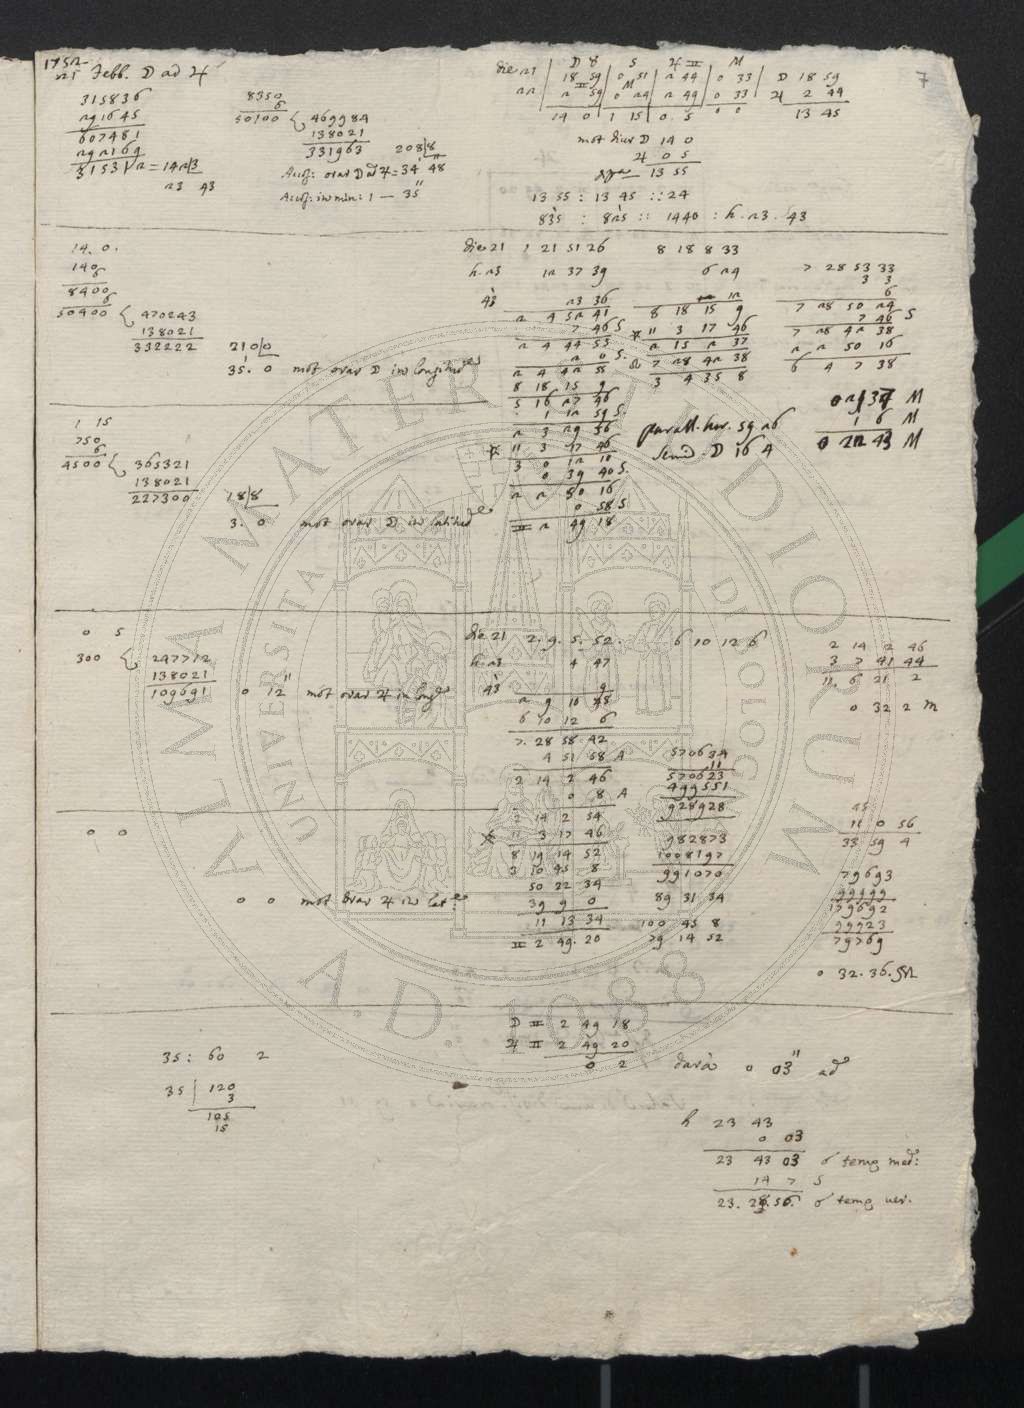 1752
21 Febb. ☽ ad ♃
315836
291645
607481
292169
315312 = 1423
23 43
8350
6
50100 { 469984
138021
331963 2088
Accesß: orar ☽ ad ♃ = 34' 48
Accesß: in min: 1 — 35"
☽ ♉ S ♃ ♊ M
die 21 | 18 59 | 0 51 | 2 44 | 0 33 | ☽ 18 59
22 | 2 59 | 0 24 | 2 49 | 0 33 | ♃ 2 44
14 0 | 1 15 | 0. 5 | 0 0 | 13 45
mot diur ☽ 14 0
♃ 0 5
13 55
13 55 : 13 45 :: 24
835 : 825 :: 1440 : h. 23. 43
7
14. 0.
140
6
8400
6
50400 { 470243
138021
332222 2100
35. 0 mot orar ☽ in longitud
die 21 1 21 51 26 8 18 8 33
h. 23 12 37 39 6 24 7 28 53 33
3 3
6
43 23 36 12 7 28 50 24
2 4 52 41 8 18 15 9 7 46 S
7 46 S. 11 3 17 46 7 28 42 38
2 4 44 53 2 15 2 37 2 2 50 16
2 0 S. 7 28 42 38 6 4 7 38
2 4 42 55 3 4 35 8
8 18 15 9
5 16 27 46
1 12 59 S.
2 3 29 56
11 3 17 46
3 0 12 10
0 39 40 S.
2 2 50 16
0 58 S.
♊ 2 49 18
1 6 M
0 22 43 M
parall. hor. 59 26
Semid. ☽ 16 4
1 15
750
6
4500 { 365321
138021
227300 188
3. 0 mot orar ☽ in latitud
0 5
300 { 247712
138021
109691 0 12" mot orar ♃ in long
die 21 2. 9. 5. 52. 6 10 12 6 2 14 2 46
h. 23 4 47 3 7 41 44
43 9 11. 6 21 2
2 9 10 48 0 32 2 M
6 10 12 6
7. 28 58 42
4 51 58 A 570634
11
2 14 2 46 570623
0 8 A 499551
2 14 2 54 928928 45
11 3 17 46 11 0 56
8 19 14 52 982873 33 59 4
3 10 45 8 1008197
50 22 34 991070 79693
39 9 0 89 31 34 99999
11 13 34 100 45 8 179692
♊ 2 49. 20 79 14 52 99923
79769
0 32. 36. M
0 0
0 0 mot orar ♃ in lat
☽ ♊ 2 49 18
♃ ♊ 2 49 20
0 2 darà 0 03" ad
35 : 60 2
35 | 120
3
105
15
h 23 43
0 03
23 43 03 ☌ temp med:
14 7 5
23. 28. 56. ☌ temp ver.
ALMA MATER STUDIORUM
UNIVERSITÀ DI BOLOGNA
A.D. 1088